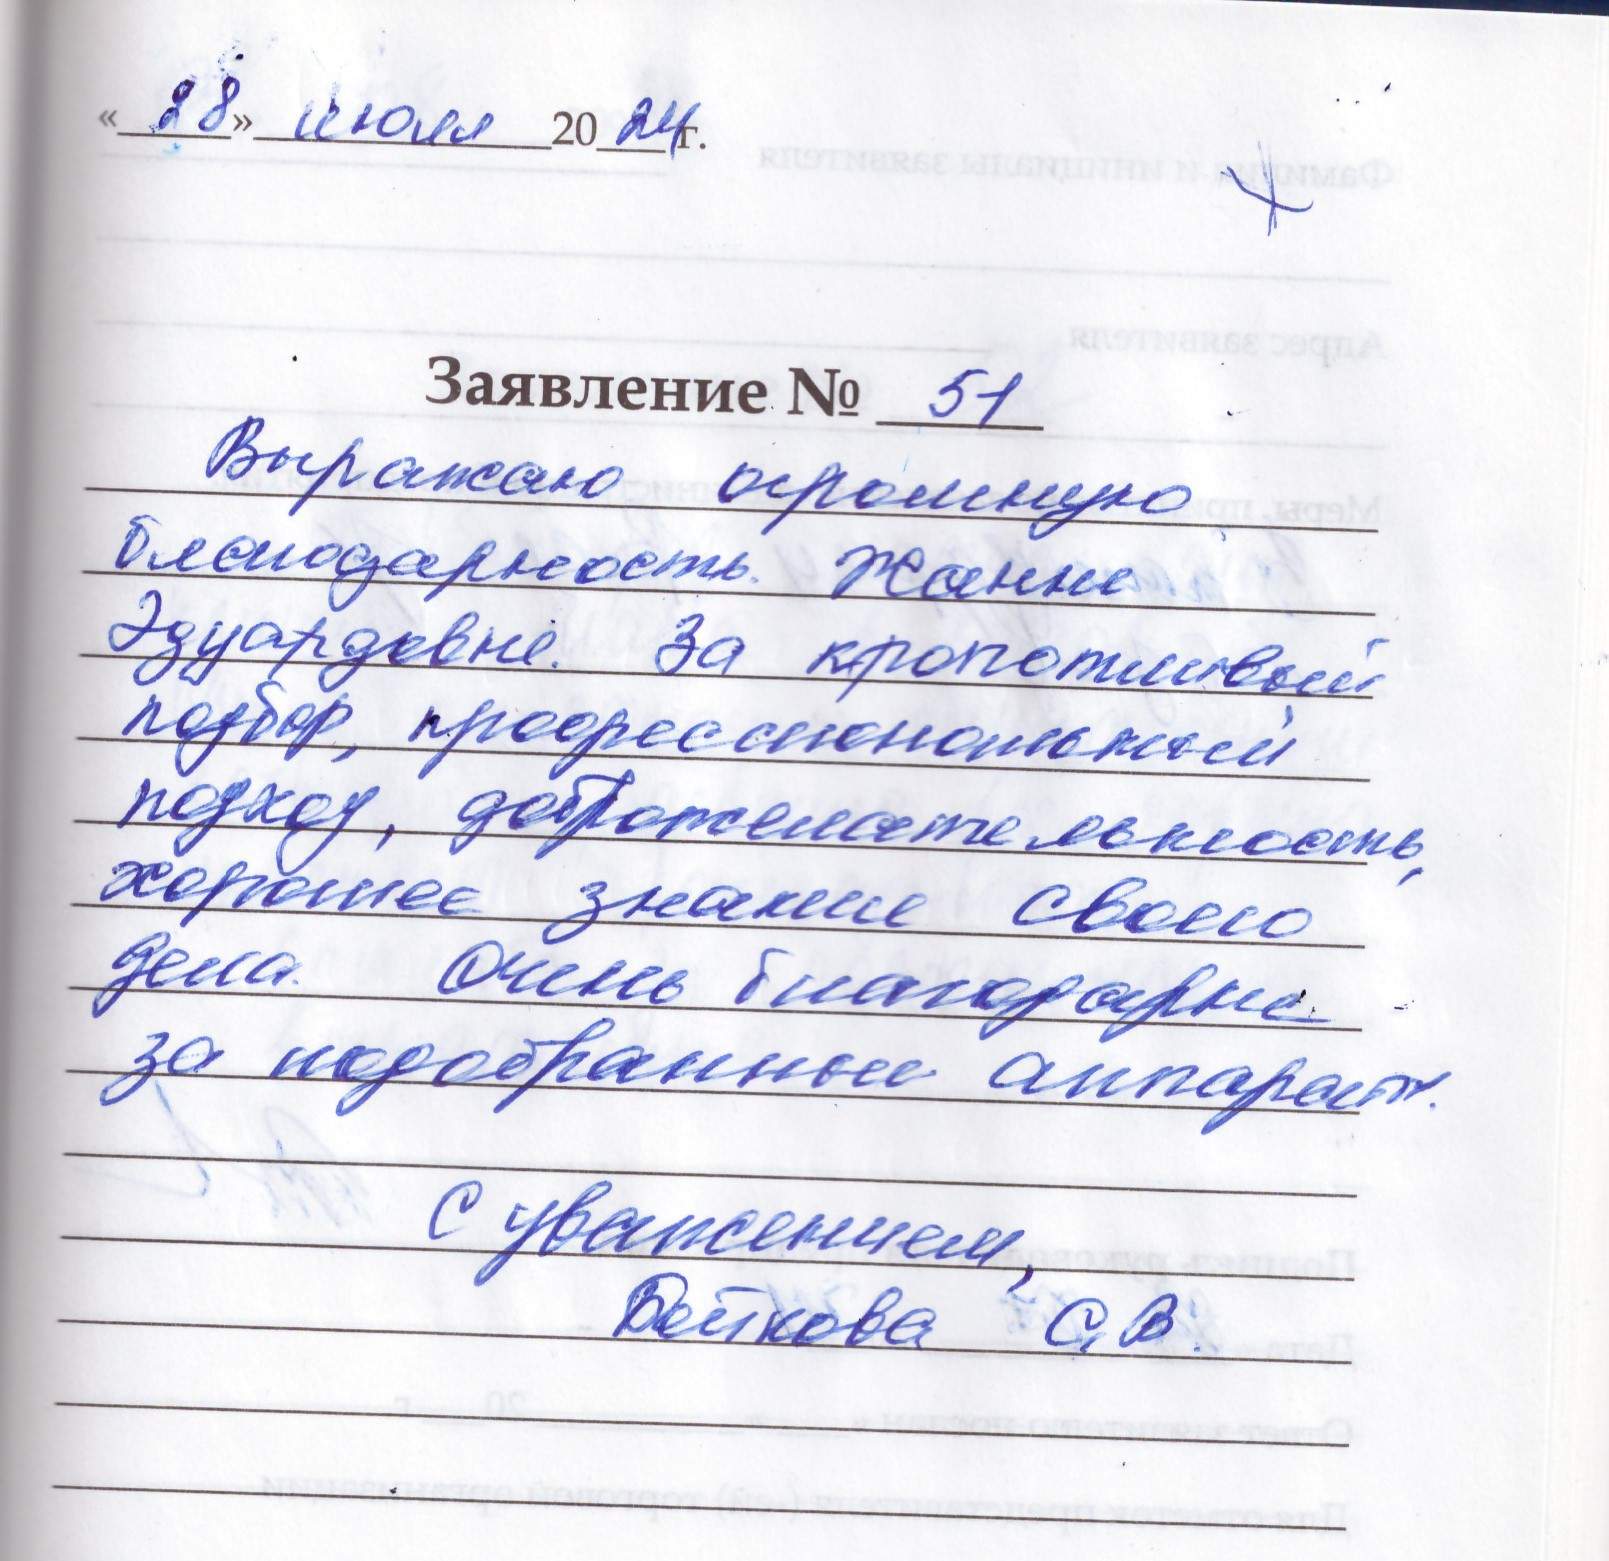 « 28 » июля 20 24 г.
Заявление № 51
Выражаю огромную
благодарность Жанне
Эдуардовне. За кропотливый
подбор, профессиональный
подход, доброжелательность,
хорошее знание своего
дела. Очень благодарна
за подобранный аппарат.
С уважением,
Бойкова С.В.